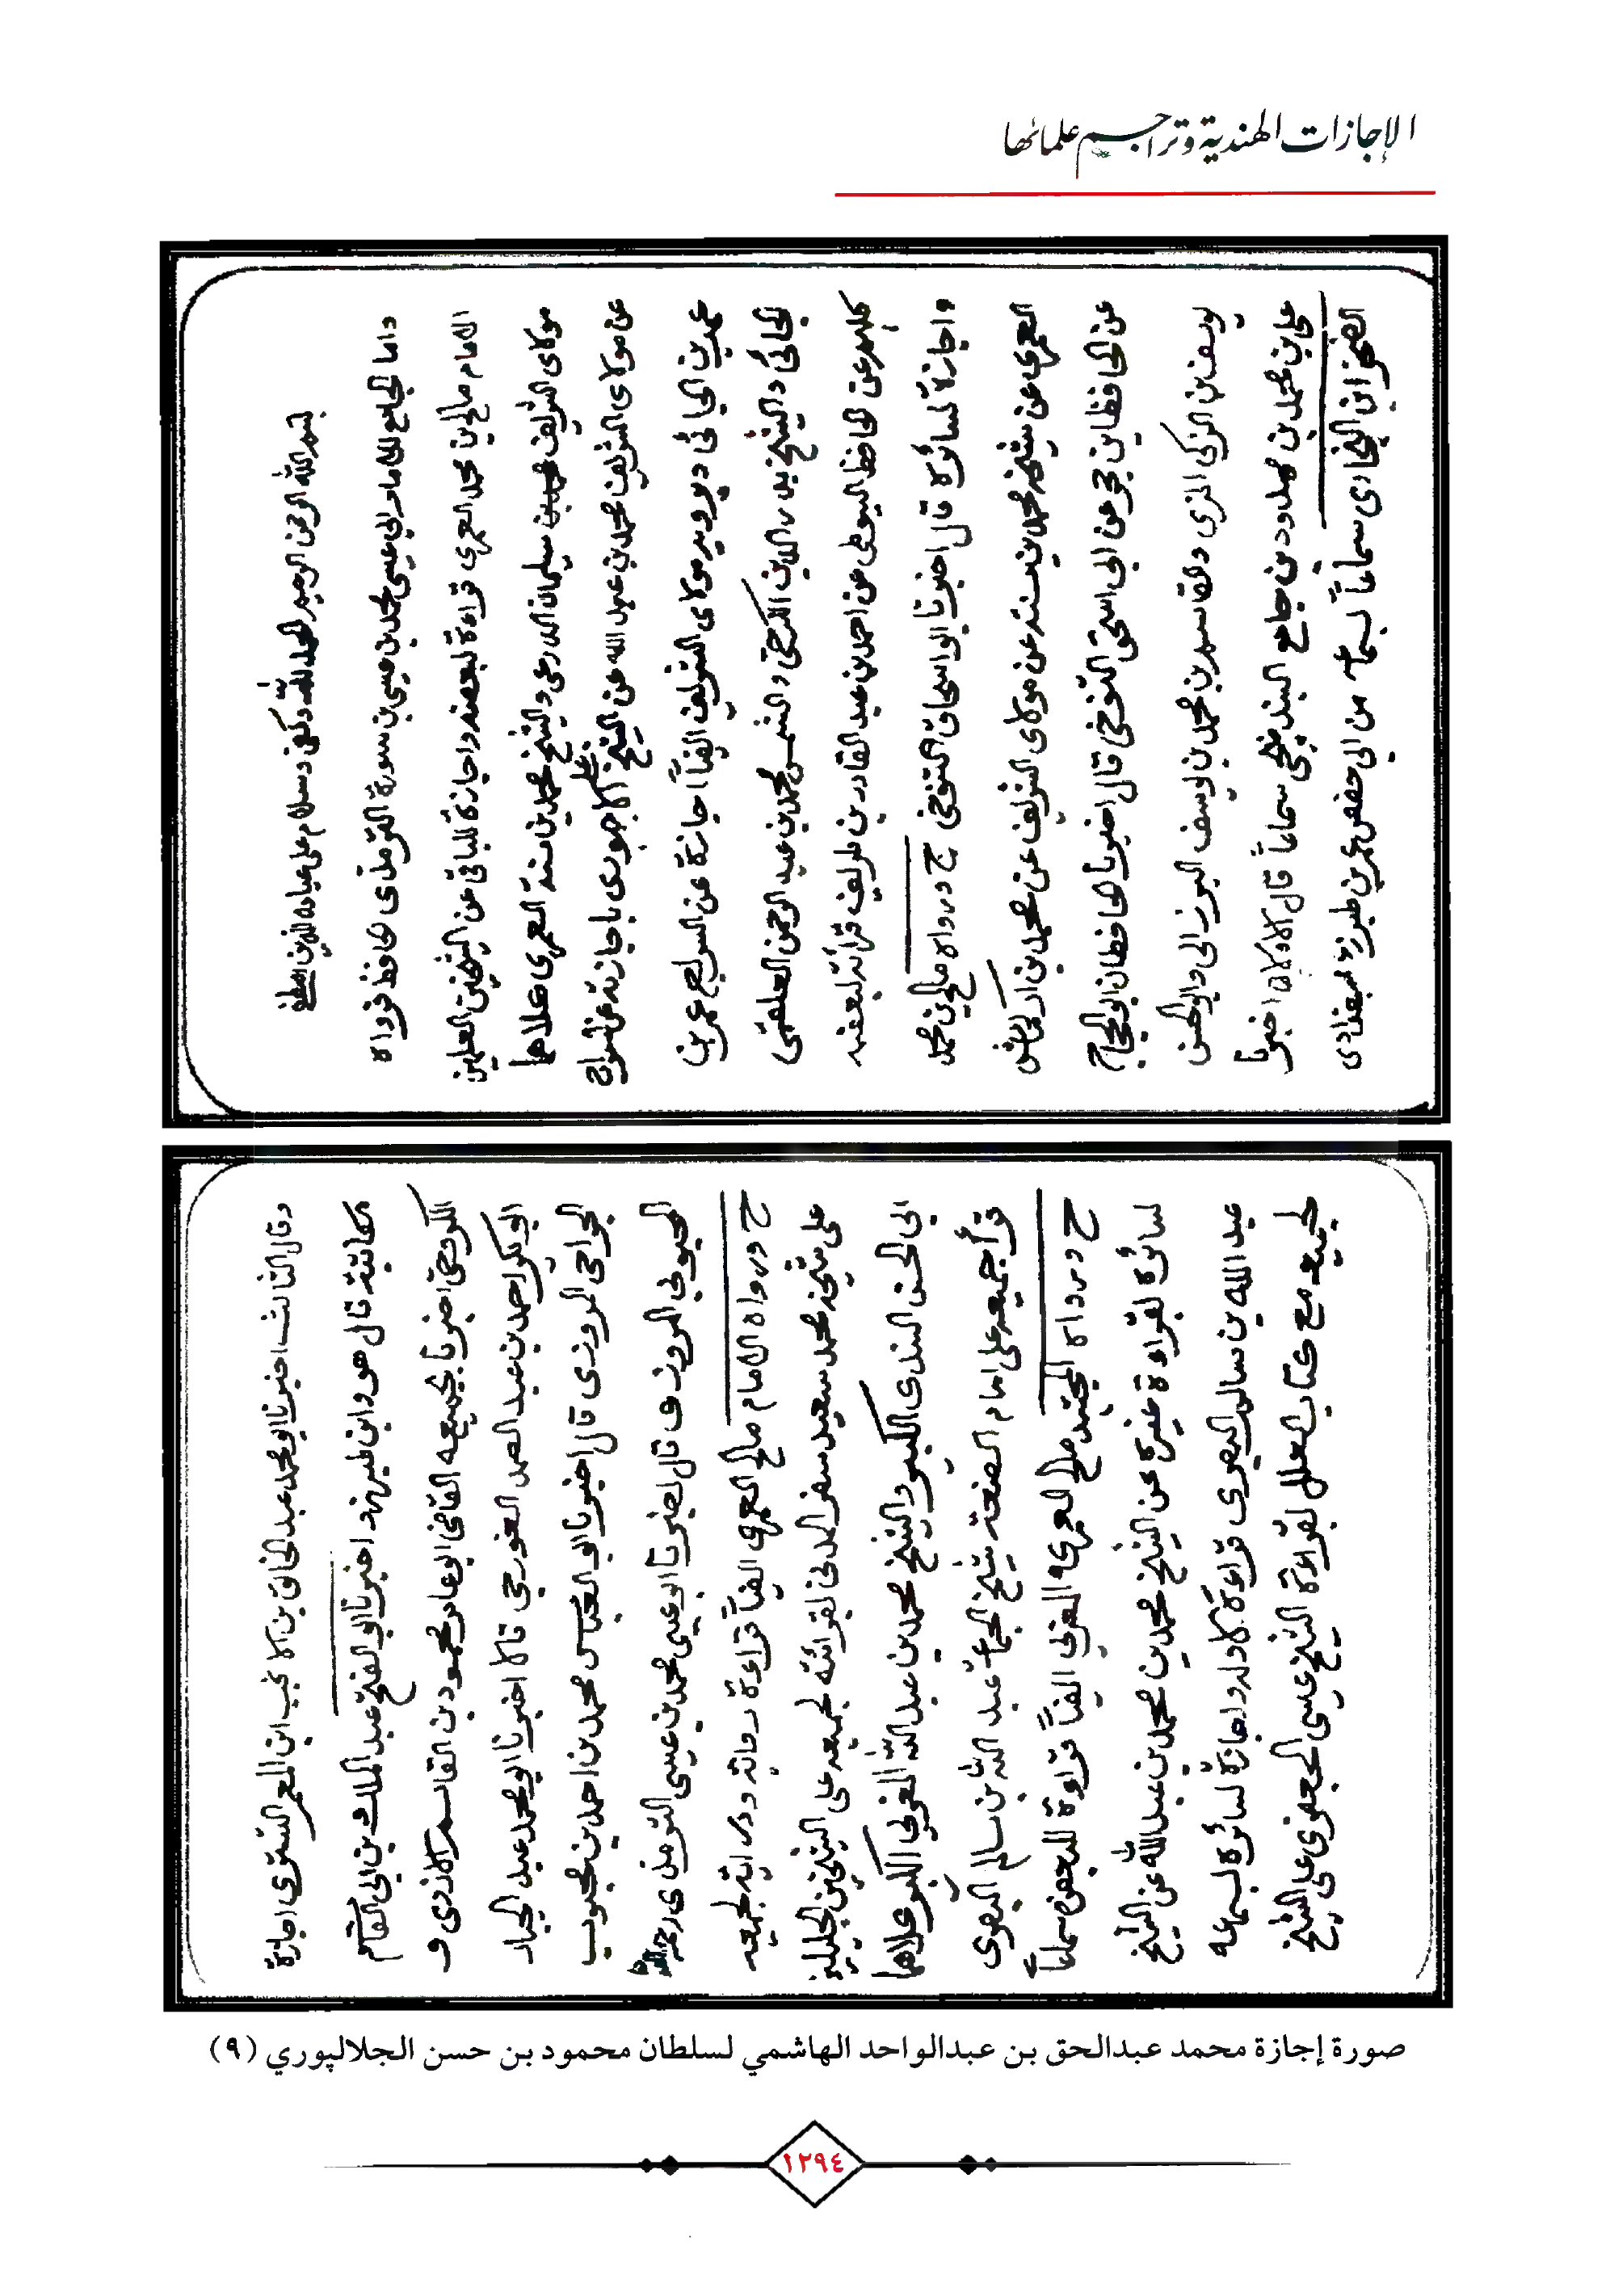 الإجازات الهندية وتراجم علمائها
بسم الله الرحمن الرحيم الحمد لله وكفى وسلام على عباده الذين اصطفى
واما الجامع للامام ابي عيسى محمد بن عيسى بن سورة الترمذي الحافظ فرواه
الامام صالح بن محمد العمري قراءة لبعضه واجازة للباقي عن الشيخين العلمين
مولاى الشريف محمد بن سليمان الدرعي والشيخ محمد بن سنة العمري كلاهما
عن مولاى الشريف محمد بن عبد الله عن الشيخ علي الاجهوري باجازته عن السراج
عمر بن الجائي د يرويه مولاى الشريف ايضاً اجازة عن السراج عمر بن
الجائي والشيخ بدر الدين الكرخي والشمس محمد بن عبد الرحمن العلقمي
كلهم عن الحافظ السيوطي عن احمد بن عبد القادر بن طريف قرأته لبعضه
واجازة لسائره قال اخبرنا ابو اسحاق التنوخي ح ورواه صالح بن محمد
العمري عن شيخه محمد بن سنه عن مولاى الشريف عن محمد بن اركماش
عن الحافظ ابن حجر عن ابي اسحق التنوخي قال اخبرنا الحافظان ابو الحجاج
يوسف بن الزكي المزي والقاسم بن محمد بن يوسف البرزالي وابو الحسن
علي بن محمد بن ممدود بن جامع البندنيجي سماعاً قال الاولان اخبرنا
الفخر ابن البخاري سماعاً بسماعه من ابي حفص عمر بن طبرزد البغدادي
وقال الثالث اخبرنا ابو محمد عبد الخالق بن الانجب ابن المعمر النشتبري اجازة
مكاتبة قال هو وابن طبرزد اخبرنا ابو الفتح عبد الملك بن ابي القاسم
الكروخي اخبرنا بجميعه القاضي ابو عامر محمود بن القاسم الازدي و
ابو بكر احمد بن عبد الصمد الغورجي قالا اخبرنا ابو محمد عبد الجبار
الجراحي المروزي قال اخبرنا ابو العباس محمد بن احمد بن محبوب
المحبوبي المروزي قال اخبرنا ابو عيسى محمد بن عيسى الترمذي رحمه الله
ح ورواه الامام صالح العمري ايضاً قراءة رواية ودراية لجميعه
على شيخه محمد سعيد سفر المدني بقرائته لجميعه على الشيخين الجليلين
ابي الحسن السندي الكبير والشيخ محمد بن عبد الله المغربي الكبير كلاهما
قرأ جميعه على امام الصنعة شيخ الجماعة عبد الله بن سالم البصري
ح ورواه المجتهد صالح العمري المغربي ايضاً قراءة للبعض سماعاً
لسائره بقراءة غيره عن الشيخ محمد بن محمد بن عبد الله عن الشيخ
عبد الله بن سالم البصري قراءة لاوله واجازة لسائره بسماعه
لجميعه مع كتاب العلل بقراءة الشيخ عيسى الجعفري على الشيخ
صورة إجازة محمد عبدالحق بن عبدالواحد الهاشمي لسلطان محمود بن حسن الجلالپوري (٩)
١٢٩٤